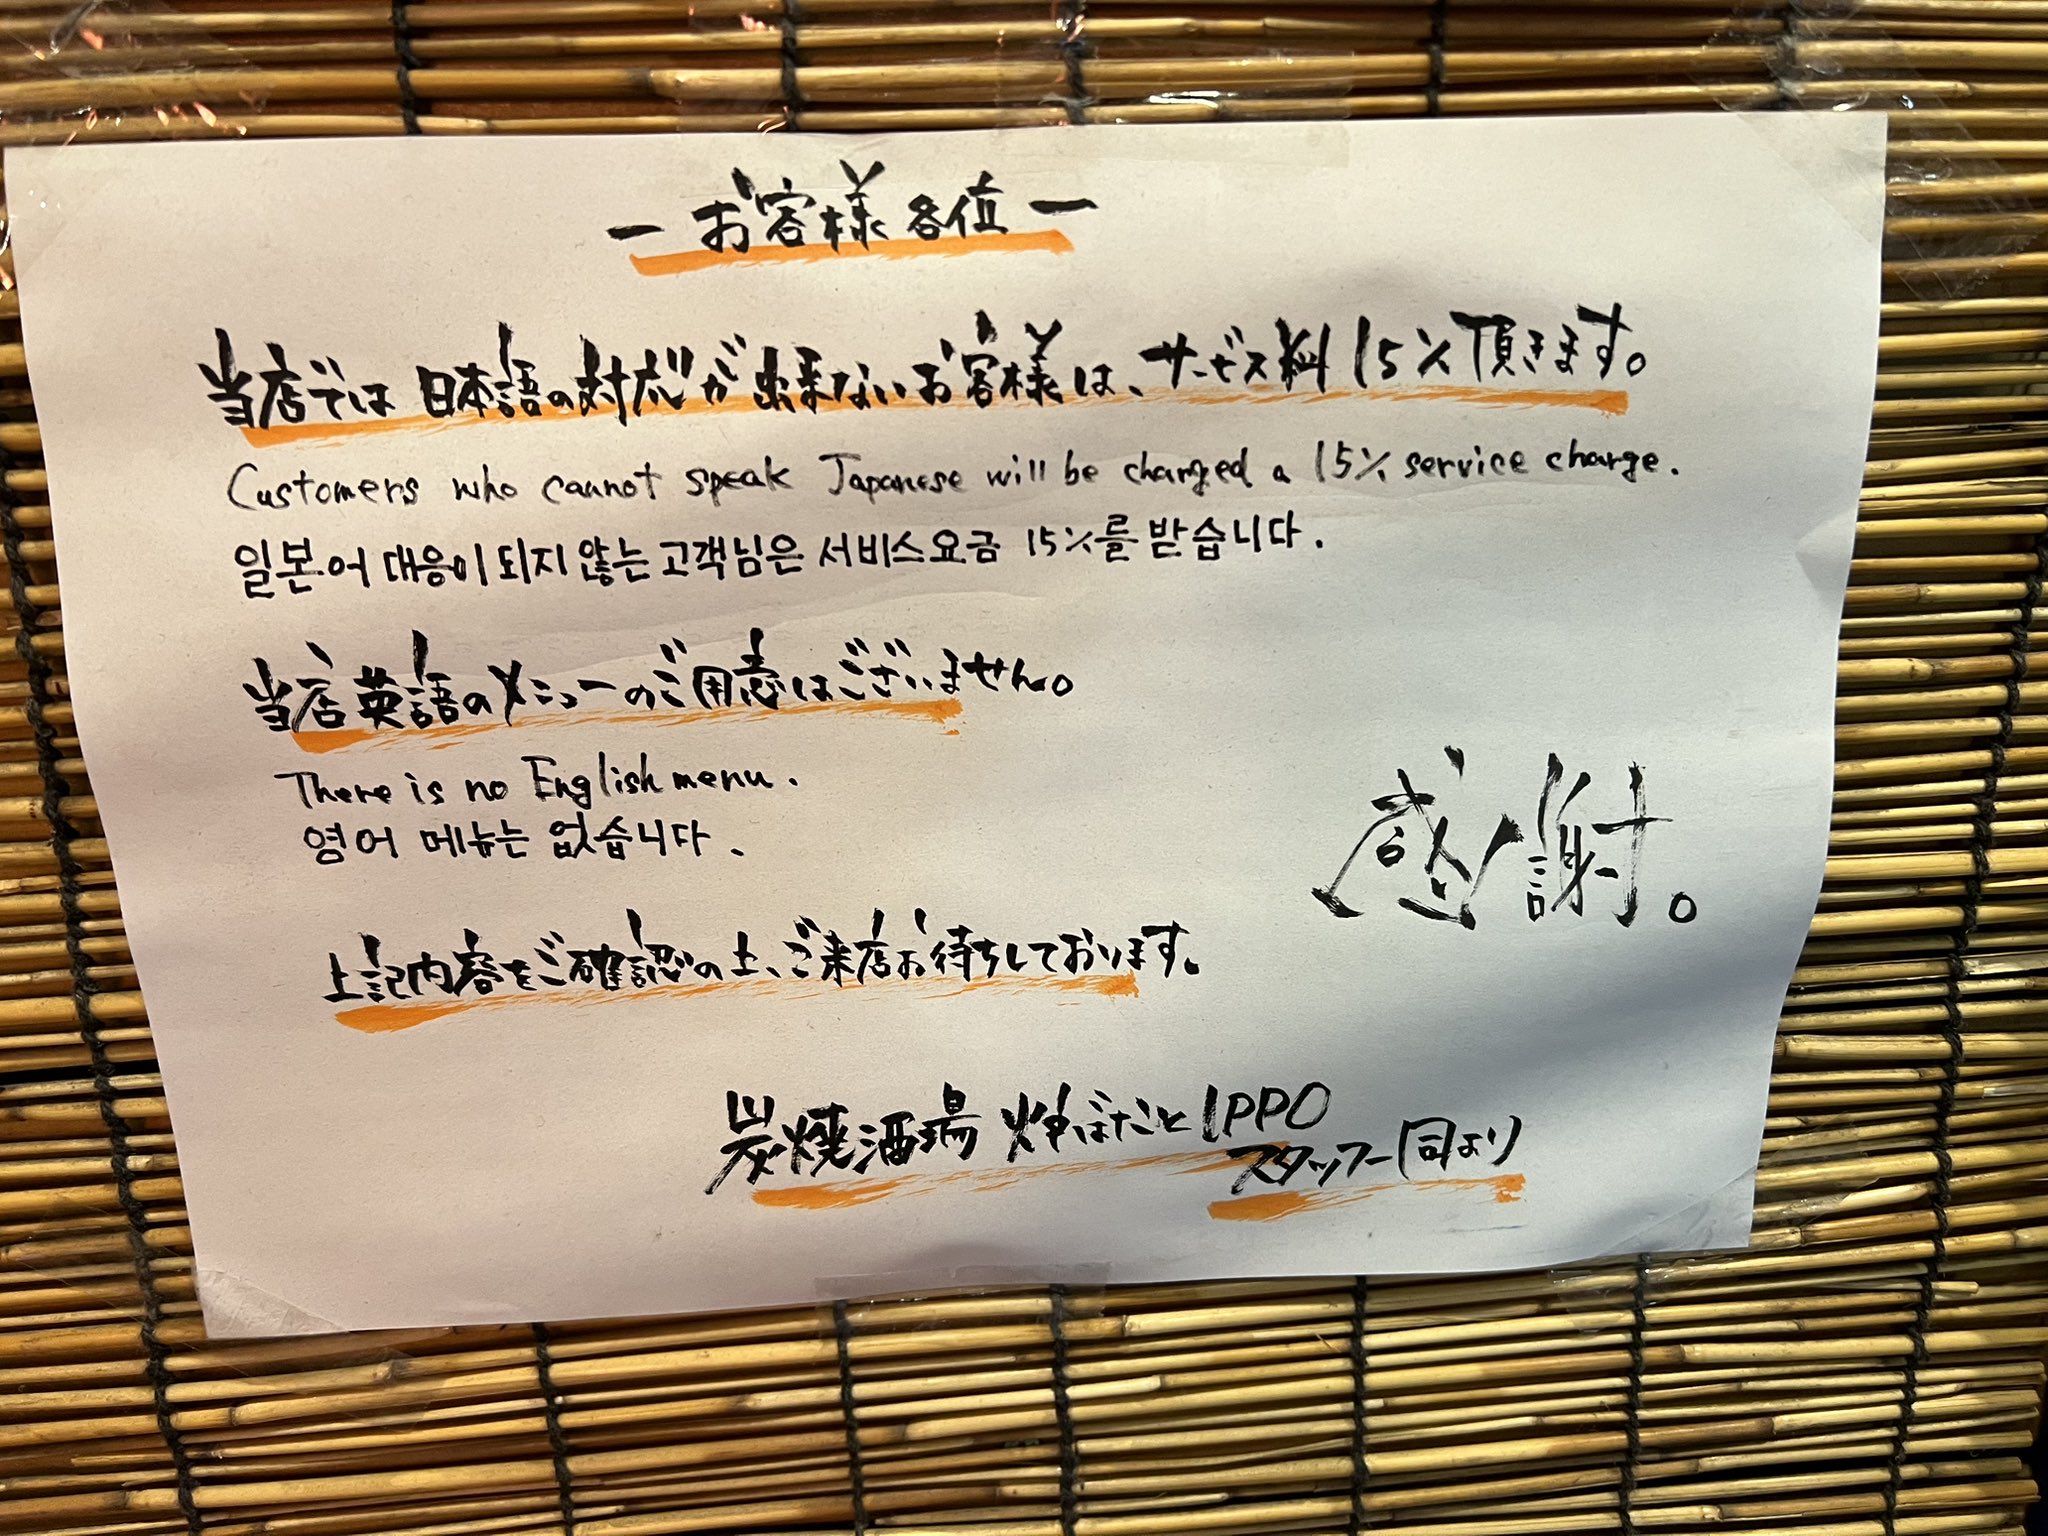 ー お客様各位 ー
当店では日本語の対応が出来ないお客様は、サービス料15%頂きます。
Customers who cannot speak Japanese will be charged a 15% service charge.
일본어 대응이 되지 않는 고객님은 서비스요금 15%를 받습니다.
当店英語のメニューのご用意はございません。
There is no English menu.
영어 메뉴는 없습니다.
感謝。
上記内容をご確認の上、ご来店お待ちしております。
炭焼酒場 炉ばたごとIPPO
スタッフ一同より